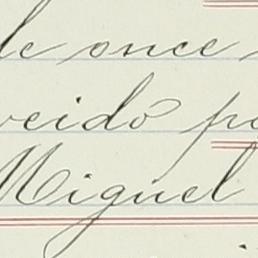 de once
veido po
Miguel